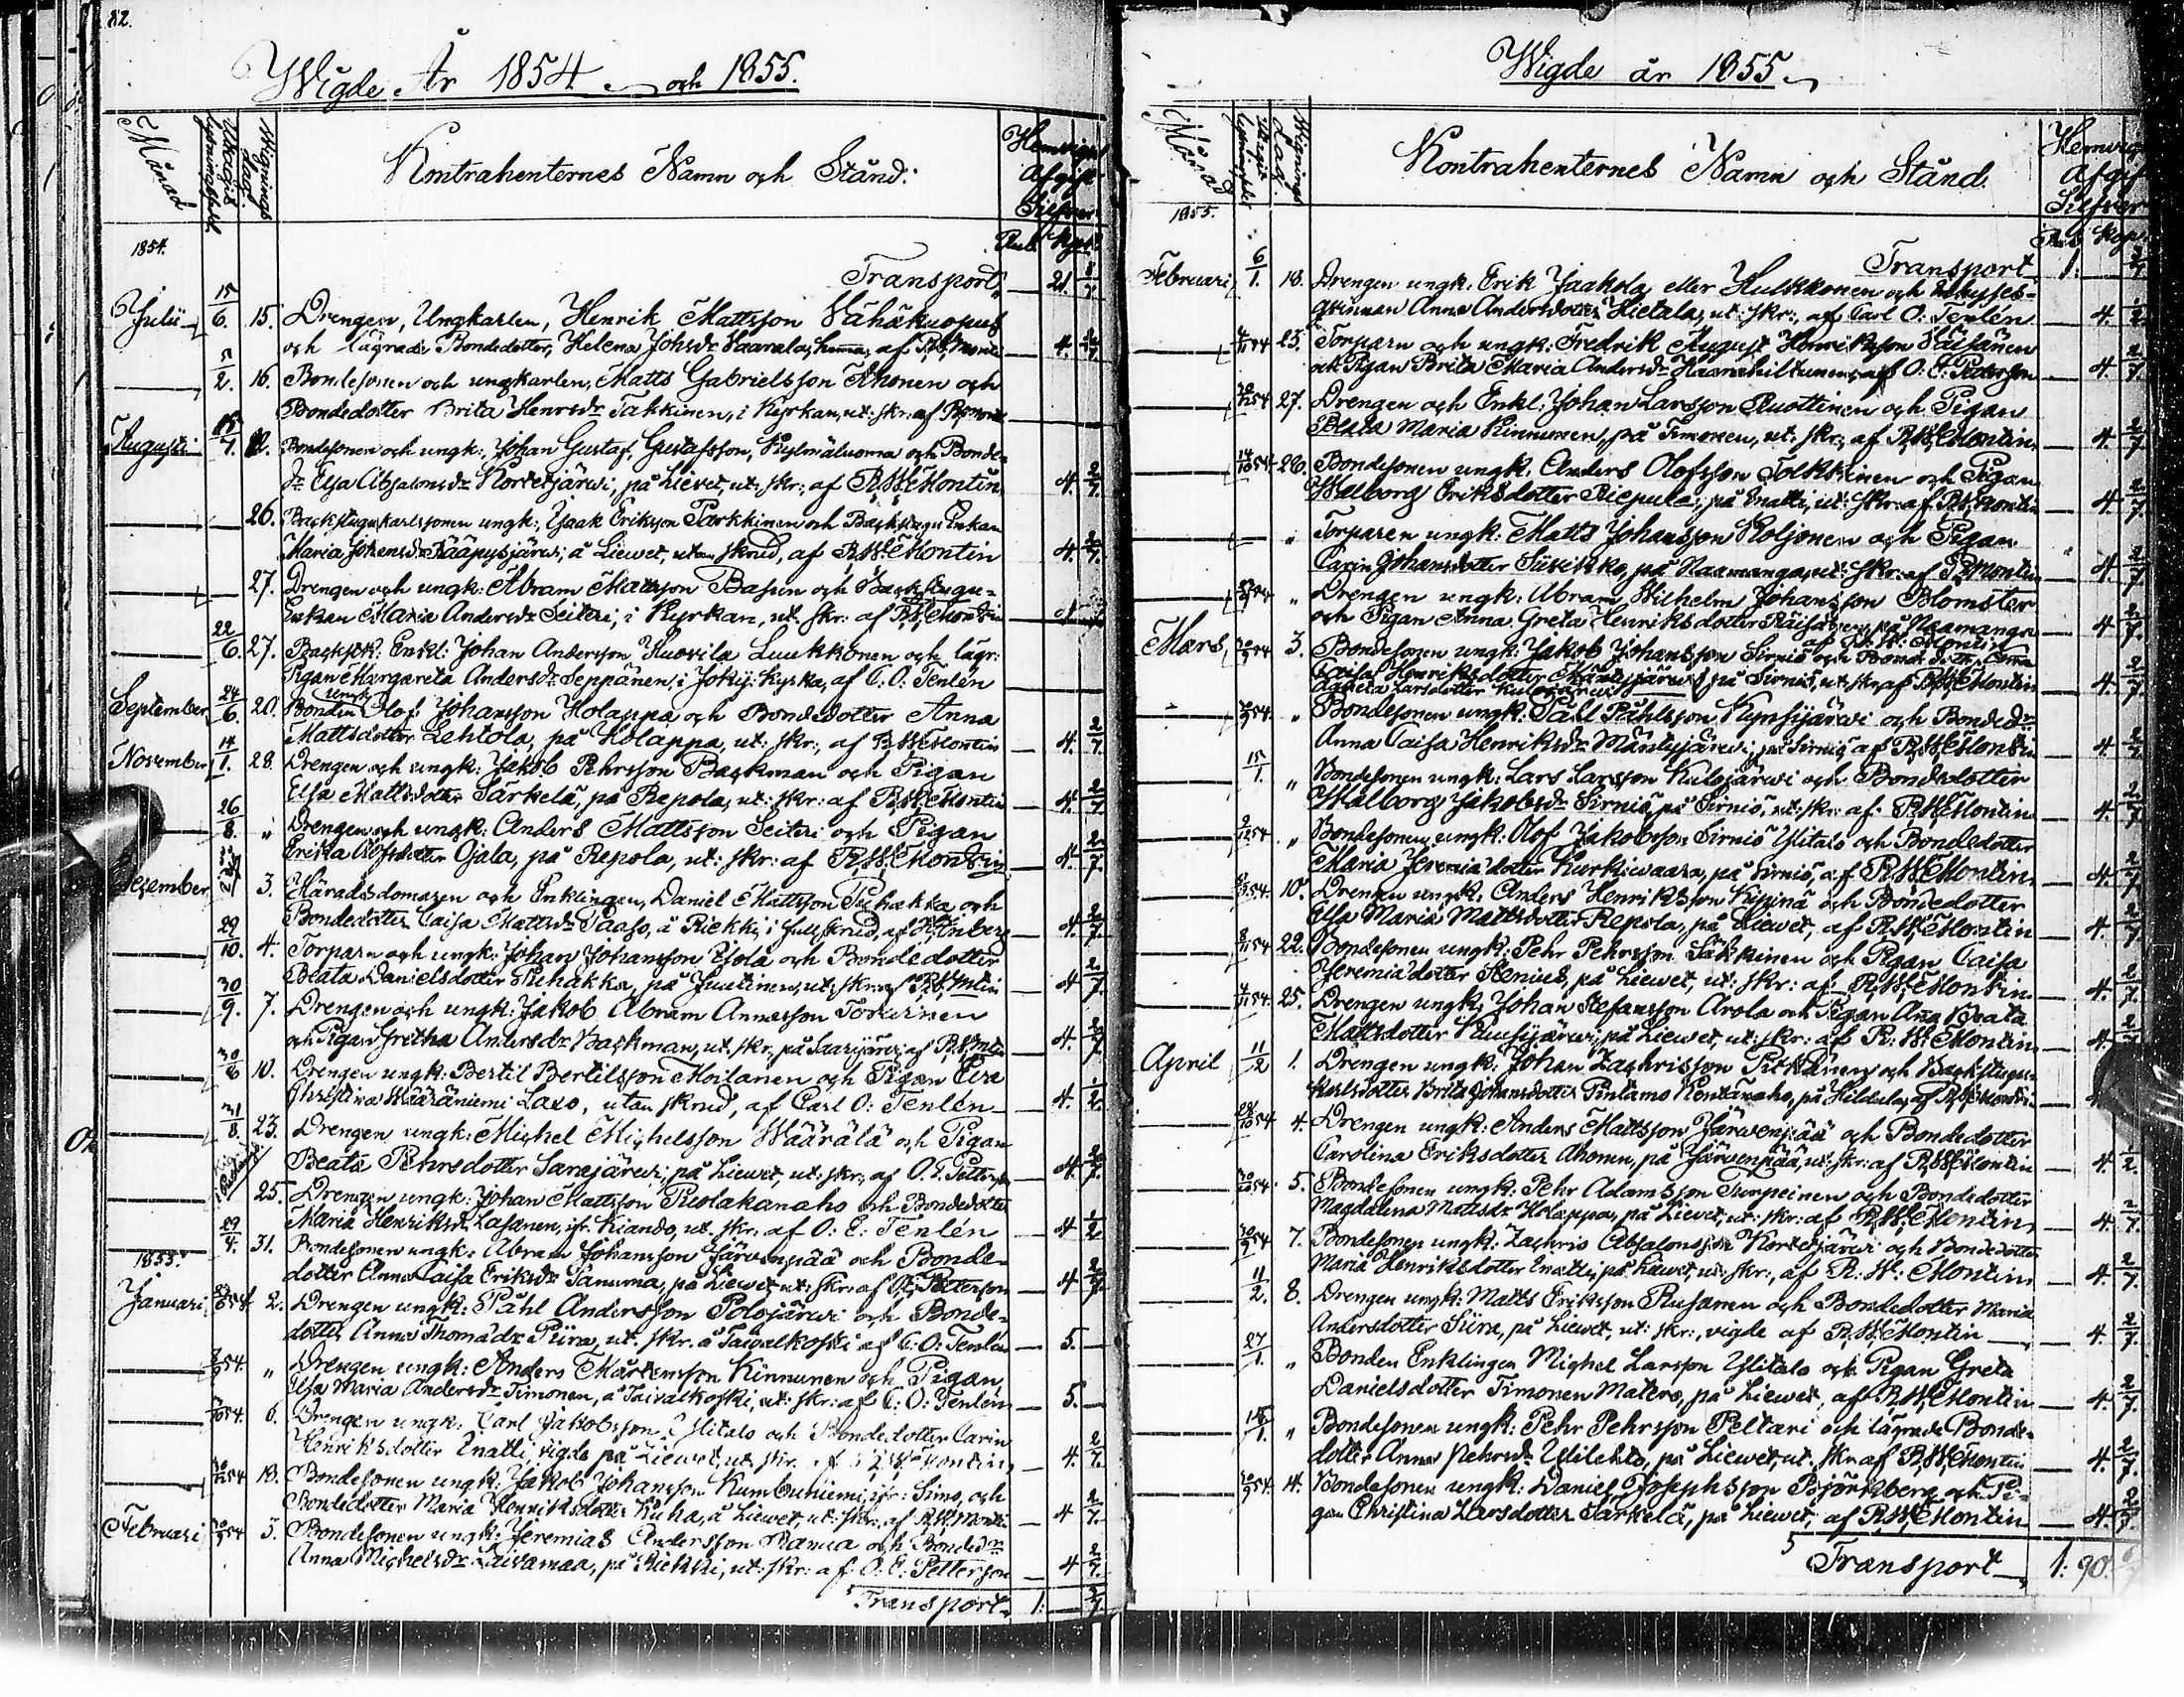 82.
Wigde År 1854 och 1855.
Månad
Wignings dag.
Kontrahenternes Namn och Stånd.
Hemvigs
Afgift
Silfver.
Rub. Kop.
1854.
Transport 21
Julii 15/6. 15. Drengen, Ungkarlen, Henrik Mattsson
och lägrade Bondedotter, Helena Johsdr Vaarala, hemma, af 4.
2. 16. Bondesonen och ungkarlen, Matts Gabrielsson Ahonen och
Bondedotter Brita Henrsdr Takkinen, i Kyrkan, ut: skr: af
Augusti 12. Bondesonen och ungk: Johan Gustaf Gustafsson, och Bonde-
dr Elsa Absalonsdr Kortetjärwi, på Liewet, ut: skr:, af R. W. Montin 4. 2/7.
26. Backstugukarlssonen ungk:, Isaak Eriksson Parkkinen och Backstugu Enkan
Maria Johansdr Rääpysjärwi, å Liewet, utan skrud, af R. W. Montin 4. 2/7.
27. Drengen och ungk: Abram Mattsson Basun och Backstugu-
Enkan Maria Andersdr Seiteri, i Kyrkan, ut. skr: af R. W. Montin
22/6. 27. Enkl: Johan Andersson Luukkonen och lägr:
Pigan Margareta Andersdr Seppänen, i Kyrka, af C. O. Tenlén
September 24/6. 20. Bonden ungk. Olof Johansson Holappa och Bondedotter Anna
Mattsdotter Lehtola, på Holappa, ut: skr:, af R. W. Montin 4. 2/7
November 14/1. 28. Drengen och ungk: Jakob Pehrsson Backman och Pigan
Elsa Mattsdotter Särkelä, på Repola, ut: skr: af R. W. Montin 4. 2/7.
26/8. " Drengen och ungk: Anders Mattsson Seiteri och Pigan
Erika Olofsdotter Ojala, på Repola, ut: skr: af R. W. Montin 4. 2/7.
December 3. Häradsdomaren och Enklingen, Daniel Mattsson Puhakka och
Bondedotter Caisa Mattsdr Paaso, å Riekki, i full skrud, af 4. 2/7.
29/10. 4. Torparn och ungk: Johan Johansson och Bondedotter
Beata Danielsdotter Puhakka, på Juutinen, ut: skr: af 4. 2/7.
30/9. 7. Drengen och ungk: Jakob Abram Annasson
och Pigan Gretha Andersdr Backman, ut. skr, på Saarijärvi, af 4. 2/7
30/8 10. Drengen ungk: Bertil Bertilsson Moilanen och Pigan Elsa
Christina Määräniemi Laxo, utan skrud, af Carl O: Tenlén 4. 1/2.
31/8. 23. Drengen ungk: Michel Michelsson Wäärälä och Pigan
Beata Pehrsdotter Sarajärwi, på Liewet, ut: skr:, af O. E. Petterson 4. 2/7.
25. Drengen ungk: Johan Mattsson Puolakanaho och Bondedotter
Maria Henriksdr Lasanen, ifr. Kiando, ut. skr. af O: E: Tenlén 4 1/2
29/4. 31. Bondesonen ungk: Abram Johansson Järwenpää och Bonde-
1855.
dotter Anna Caisa Eriksdr Tanuma, på Liewet, ut: skr: af O: E: Petterson 4 2/7.
Januari 2. Drengen ungk: Påhl Andersson Polojärwi och Bonde-
dotter Anna Thomædr Piira, ut. skr. å Taiwalkoski af C: O: Tenlén 5.
" Drengen ungk: Anders Mårtensson Kinnunen och Pigan
Elsa Maria Andersdr Timonen, å Taiwalkoski, ut: skr: af C: O: Tenlén 5.
6. Drengen ungk: Carl Jakobsson Ylitalo och Bondedotter Carin
Henriksdotter Enatti, vigde på Liewet, ut skr. af Montin 4. 2/7.
18. Bondesonen ungk: Jakob Johansson Kumbuniemi, ifr: Simo, och
Bondedotter Maria Henriksdotter Kuha, å Liewet, ut: skr: af R. W. Montin 4 2/7.
Februari 3. Bondesonen ungk: Jeremias Andersson Ranua och Bondedr
Anna Michelsdr Laivamaa, på Riekki, ut: skr: af O. E: Petterson 4 2/7.
Transport 1: 2/7.
Wigde år 1855.
Månad
Wignings Dag
Kontrahenternes Namn och Stånd.
Hemvigs
Afgift
Silfver
Rub Kop.
1855.
Transport 1: 2/7
Februari 6/1. 18. Drengen ungk. Erik Jaakola eller Hulkkonen och
qvinnan Anna Andersdotter Hietala, ut: skr:, af Carl O: Tenlén 4. 1/2
25. Torparn och ungk: Fredrik August Henriksson Väisänen
och Pigan Brita Maria Andersdr af O: E: Petterson 4. 2/7.
27. Drengen och Enkl: Johan Larsson Ruottinen och Pigan
Beata Maria Kinnunen, på Timonen, ut. skr, af R. W. Montin. 4. 2/7.
28. Bondesonen ungk. Anders Olofsson Tolkkinen och Pigan
Walborg Eriksdotter Riepula, på Enatti, ut: skr: af R. W. Montin 4. 2/7.
" Torparen ungk: Matts Johansson Koljonen och Pigan
Carin Johansdotter Siirikko, på Naamanga, ut: skr: af R. W. Montin 4 2/7.
" Drengen ungk: Abram Wilhelm Johansson Blomster
och Pigan Anna Greta Henriksdotter Räisänen, på Naamanga
af R. W. Montin 4 2/7.
Mars 3. Bondesonen ungk: Jakob Johansson Sirniö och Bonde dotter Anna
Caisa Henriksdotter Mäntyjärwi, på Sirniö, ut. skr. af R. W. Montin 4. 2/7.
Agneta Larsdotter Kulojärwi
" Bondesonen ungk. Påhl Påhlsson Kynsijärwi och Bondedr
Anna Caisa Henriksdr Mäntyjärwi, på Sirniö, af R. W. Montin 4 2/7.
15/1. " Bondesonen ungk: Lars Larsson Kulojärwi och Bondedotter
Walborg Jakobsdr Sirniö, på Sirniö, ut. skr: af R. W. Montin 4. 2/7.
" Bondesonen ungk. Olof Jakobsson Sirniö Ylitalo och Bondedotter
Maria Jeremiædotter Kurkiwaara, på Sirniö, af R. W. Montin 4. 2/7.
10. Drengen ungk. Anders Henriksson och Bondedotter
Elsa Maria Mattsdotter Repola, på Liewet, af R. W. Montin 4. 2/7.
22. Bondesonen ungk: Pehr Pehrsson Säkkinen och Pigan Caisa
Jeremiædotter Stenius, på Liewet, ut: skr: af R. W. Montin 4. 2/7.
25. Drengen ungk: Johan Stefansson Arola och Pigan Anna Beata
Mattsdotter på Liewet, ut: skr: af R: W: Montin 4.
April 11/2 1. Drengen ungk: Johan Zachrisson Pitkänen och Backstugu-
karlsdotter Brita Johansdotter Pintamo Kentänaho, på Hildula, af R. W. Montin
4. Drengen ungk: Anders Mattsson Järwenpää och Bondedotter
Carolina Eriksdotter Ahonen, på Järvenpää, ut: skr: af R. W. Montin 4. 1/2.
5. Bondesonen ungk: Pehr Adamsson Turpeinen och Bondedotter
Magdalena Matsdr Holappa, på Liewet, ut: skr: af R. W. Montin 4. 2/7.
7. Bondesonen ungk: Zachris Absalonsson Kortetjärwi och Bondedotter
Maria Henriksdotter Enatti, på Liewet, ut: skr:, af R: W: Montin 4. 2/7.
11/2. 8. Drengen ungk: Matts Eriksson Rusanen och Bondedotter Maria
Andersdotter Siira, på Liewet, ut: skr:, vigde af R. W. Montin 4. 2/7.
27/1. " Bonden Enklingen Michel Larsson Ylitalo och Pigan Greta
Danielsdotter Timonen Matero, på Liewet, af R. W. Montin 4. 2/7.
" Bondesonen ungk: Pehr Pehrsson Peltari och lägrade Bonde-
dotter Anna Pehrsdr Ylilehto, på Liewet, ut. skr. af R. W. Montin 4. 2/7.
14. Bondesonen ungk: Daniel Josephsson Björkberg och Pi-
gan Christina Larsdotter Särkelä, på Liewet, af R. W. Montin 4. 2/7.
Transport 1: 90.